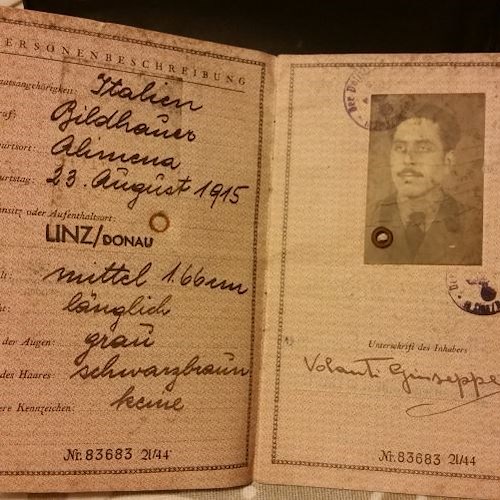 ERSONENBESCHREIBUNG
aatsangehörigkeit: Italien
ruf: Bildhauer
burtsort: Almena
burtstag: 23. August 1915
nsitz oder Aufenthaltsort:
LINZ/DONAU
lt: mittel 1.66cm
ht: länglich
der Augen: grau
des Haares: schwarzbraun
ere Kennzeichen: keine
Nr. 83683 21/44
Unterschrift des Inhabers
Volanti Giuseppe
Nr. 83683 21/44